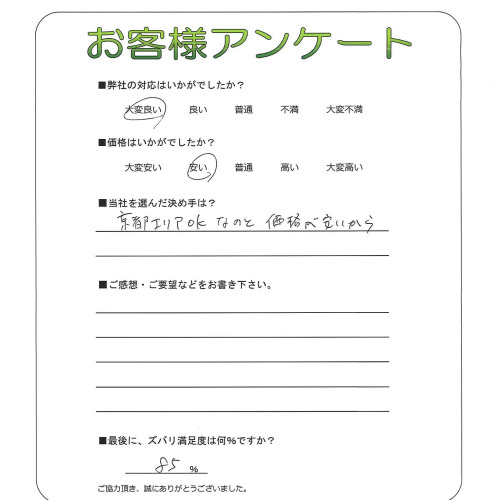 お客様アンケート
■弊社の対応はいかがでしたか？
大変良い 良い 普通 不満 大変不満
■価格はいかがでしたか？
大変安い 安い 普通 高い 大変高い
■当社を選んだ決め手は？
京都エリアOKなのと 価格が安いから
■ご感想・ご要望などをお書き下さい。
■最後に、ズバリ満足度は何%ですか？
85 %
ご協力頂き、誠にありがとうございました。